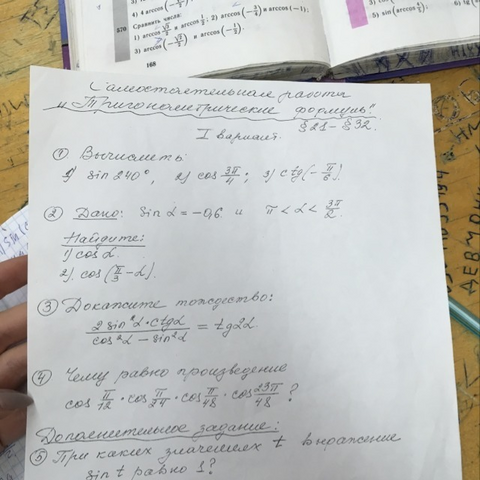 4) arccos
570 Сравнить числа:
1) arccos √3/2 и arccos 1/2; 2) arccos (−3/4) и arccos (−1);
3) arccos (−√2/2) и arccos (−1/2).
168
Самостоятельная работа
"Тригонометрические формулы"
§21-§32.
I вариант.
① Вычислить:
1) sin 240°, 2) cos 3π/4; 3) ctg(-π/6)
② Дано: sin α = -0,6 и π < α < 3π/2.
Найдите:
1) cos α.
2) cos (π/3 - α).
③ Докажите тождество:
2 sin²α · ctgα / cos²α - sin²α = tg2α.
④ Чему равно произведение
cos π/12 · cos π/24 · cos π/48 · cos 23π/48 ?
Дополнительное задание:
⑤ При каких значениях t выражение
sin t равно 1?